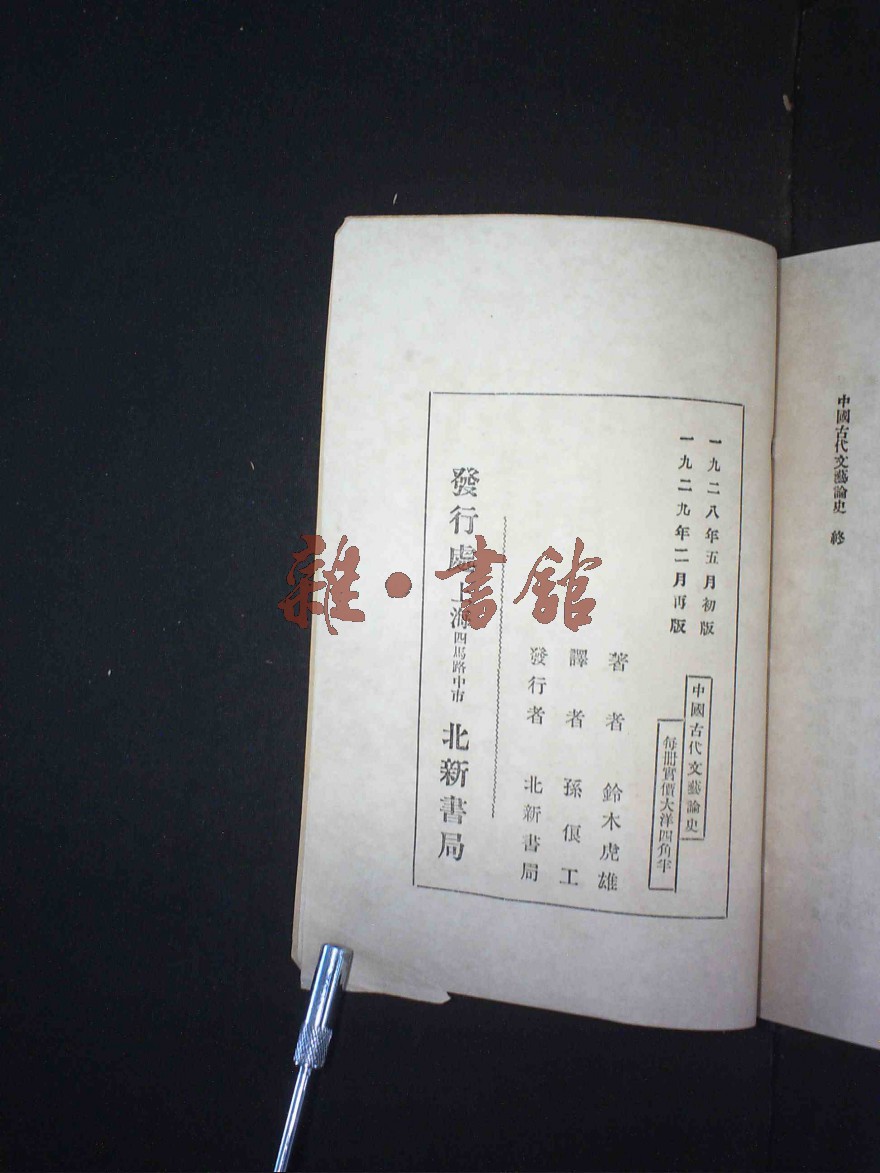 中國古代文藝論史 終
一九二八年五月初版
一九二九年二月再版
中國古代文藝論史
每冊實價大洋四角半
著者 鈴木虎雄
譯者 孫俍工
發行者 北新書局
發行處 上海四馬路中市 北新書局
雜·書館